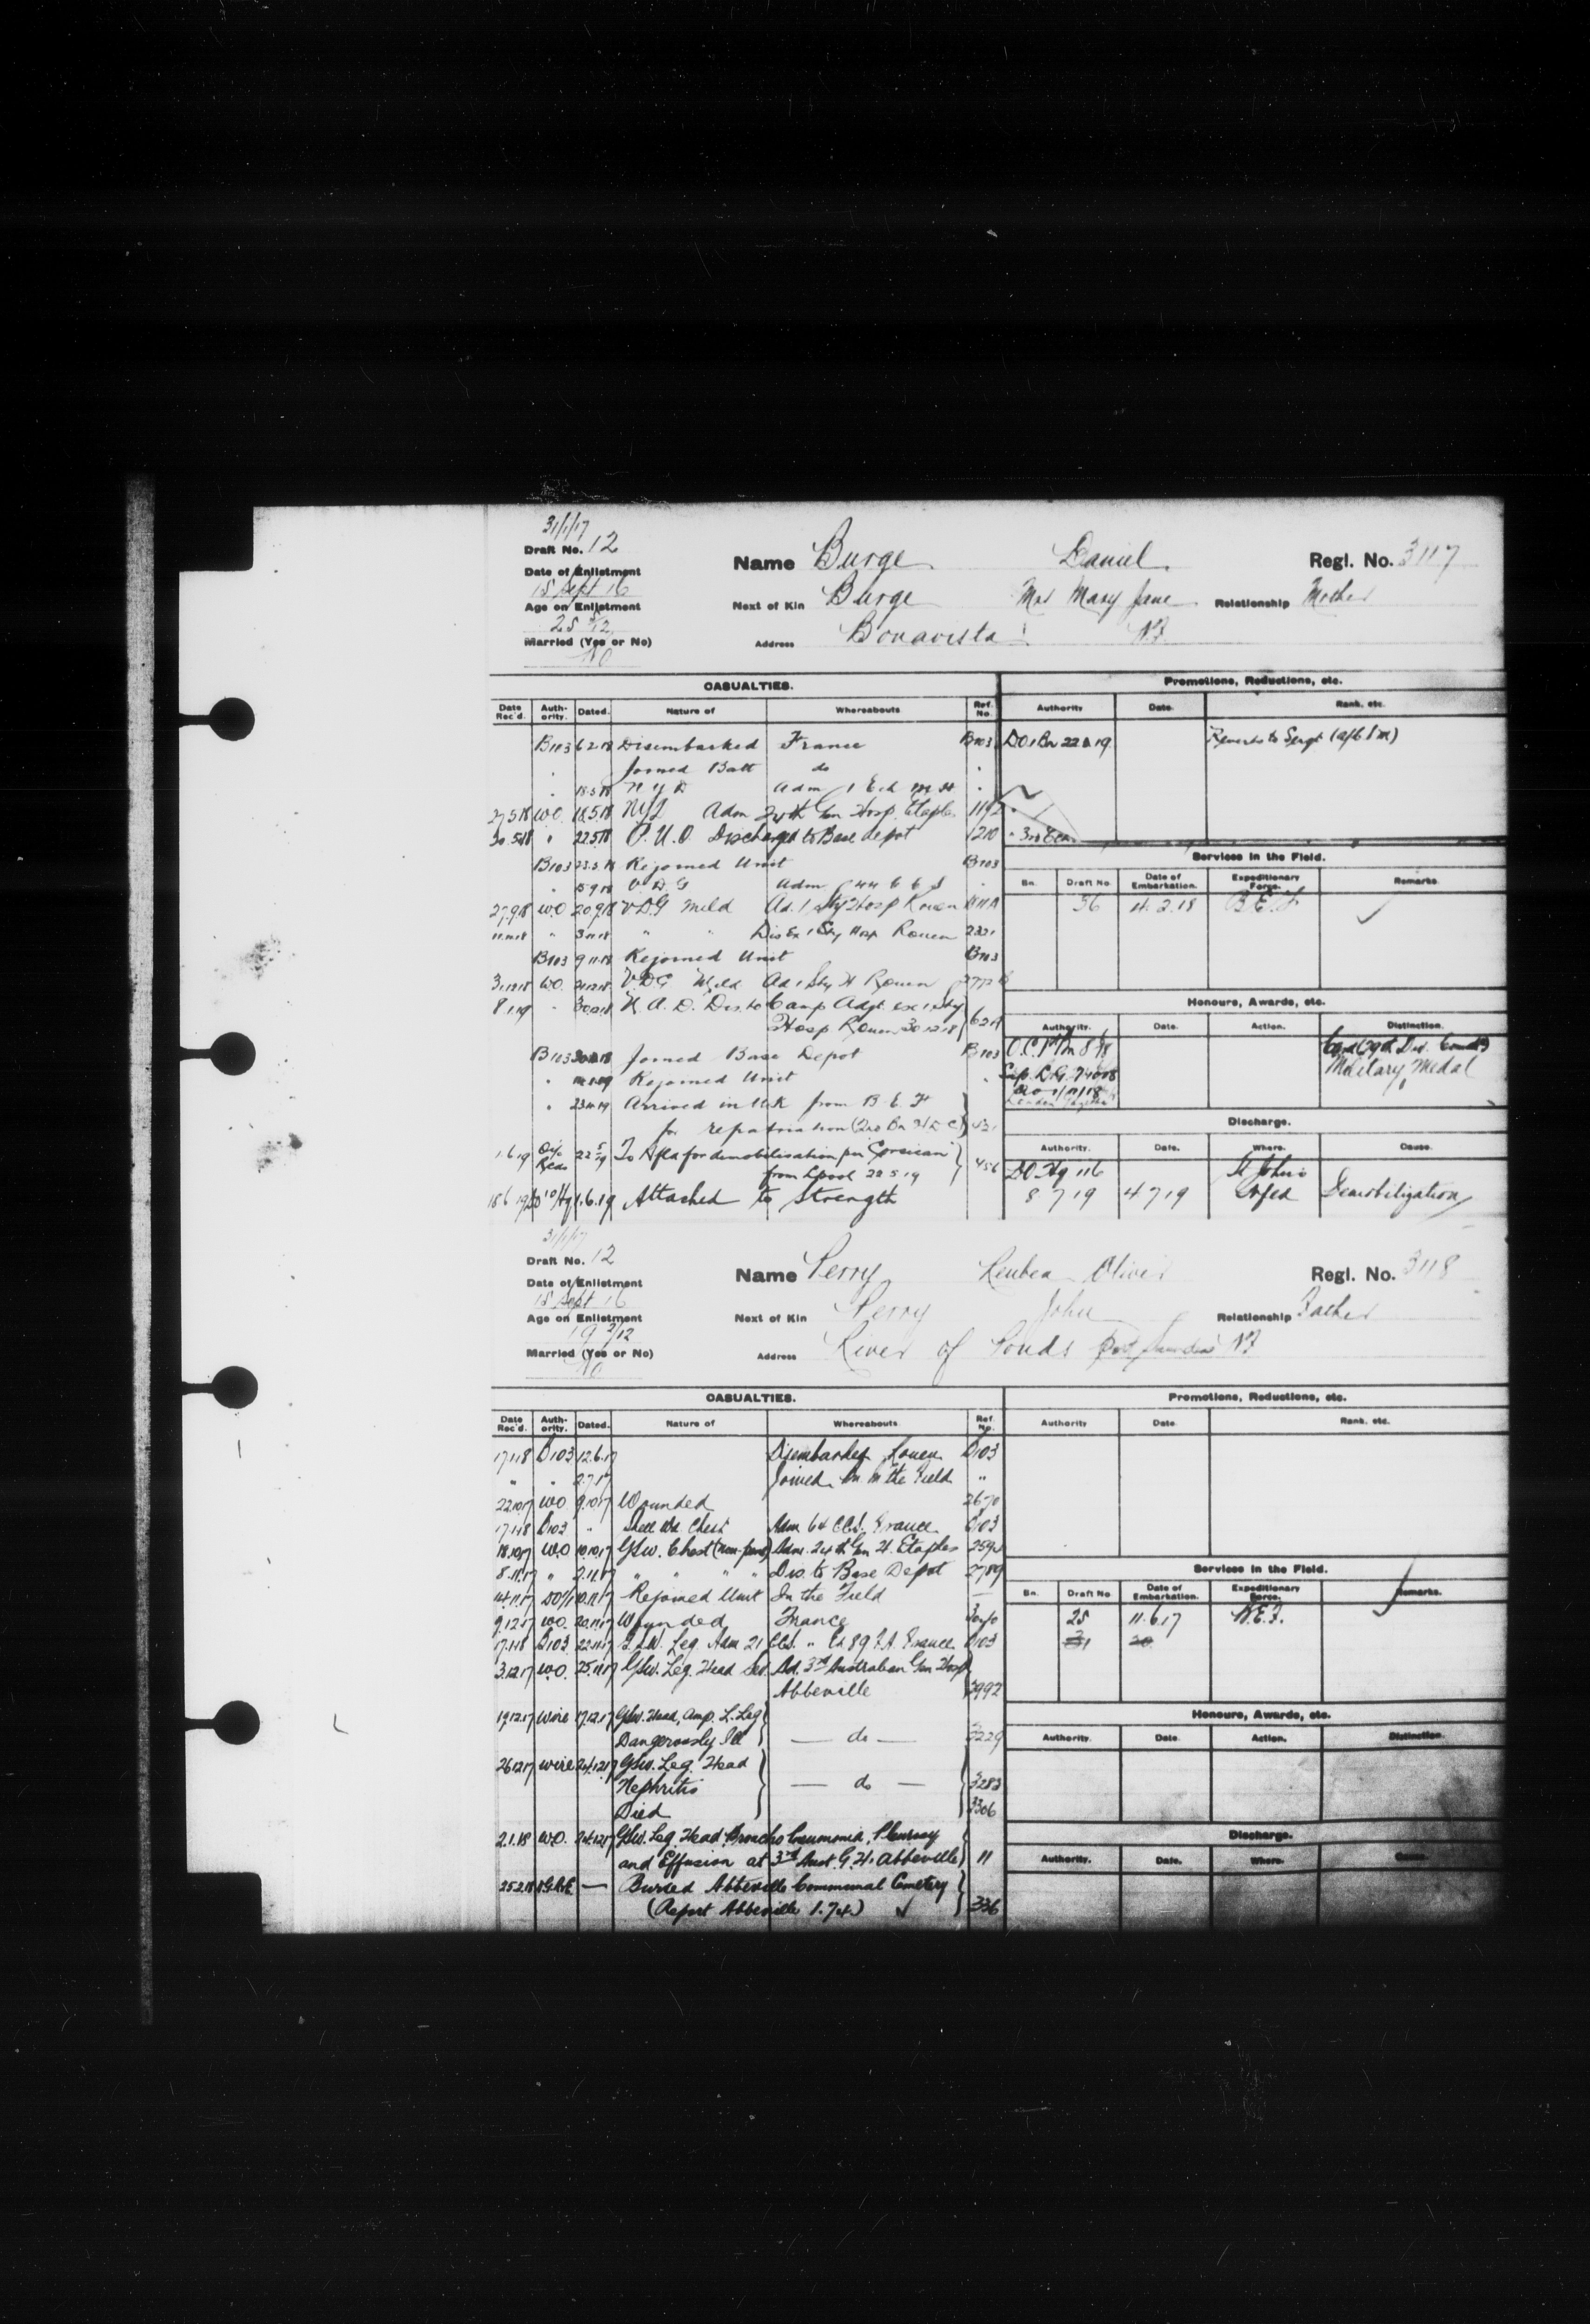 31/1/17
Draft No. 12
Name Burge Daniel Regl. No. 3117
Date of Enlistment
15 Sept 16
Next of Kin Burge Mrs Mary Jane Relationship Mother
Age on Enlistment
25
Address Bonavista N.F.
Married (Yes or No)
No
CASUALTIES. Promotions, Reductions, etc.
Date Rec'd. Auth-ority. Dated. Nature of Whereabouts Ref. No. Authority Date Rank, etc.
B103 6.2.18 Disembarked France B103
Reverts to Sergt
Joined Batt do
N Y D Adm
27.5.18 W.O. 18.5.18 NYD Adm 24th Gen Hosp. Etaples
30.5.18 " 22.5.18 P.U.O Discharged to Base depot 1210
B103 Rejoined Unit B103
Services in the Field.
V.D.G Adm 44 C C S
Bn. Draft No Date of Embarkation. Expeditionary Force. Remarks
27.9.18 W.O 20.9.18 V.D.G Mild Ad. 1 Sty Hosp Rouen
56 4.2.18 B.E.F
" " " Dis Ex 1 Sty Hosp Rouen
B103 9.11.18 Rejoined Unit B103
W.O. V.D.G Mild Ad 1 Sty H Rouen
8.1.19 Dis. to Camp Adjt. ex 1 Sty
Hosp Rouen 30.12.18
Honours, Awards, etc.
Authority. Date. Action. Distinction.
B103 Joined Base Depot B103
Military Medal
Rejoined Unit
London Gazette
Arrived in U.K from B.E.F
for repatriation
Discharge.
Authority. Date. Where. Cause.
1.6.19 To Nfld for demobilisation per "Corsican" 456
from Lpool 22.5.19
St John's
18.6.19 1.6.19 Attached to Strength
8 7 19 4 7 19 Nfld Demobilization
31/1/17
Draft No. 12
Name Perry Reuben Oliver Regl. No. 3118
Date of Enlistment
15 Sept 16
Next of Kin Perry John Relationship Father
Age on Enlistment
19 2/12
Address River of Ponds Port Saunders N.F
Married (Yes or No)
No
CASUALTIES. Promotions, Reductions, etc.
Date Rec'd. Auth-ority. Dated. Nature of Whereabouts Ref. No. Authority Date Rank, etc.
17.1.18 B103 12.6.17 Disembarked Rouen B103
" " 2.7.17 Joined Bn in the Field "
22.10.17 W.O 9.10.17 Wounded 2670
17.1.18 B103 " Shell Wd. Chest Adm 64 CCS. France B103
18.10.17 W.O 10.10.17 GSW. Chest Adm. 24th Gen H. Etaples
8.11.17 " 2.11.17 " " " " Dis. to Base Depot 2789
Services in the Field.
Bn. Draft No Date of Embarkation. Expeditionary Force. Remarks.
14.11.17 10.11.17 Rejoined Unit In the Field
9.12.17 W.O. 20.11.17 Wounded France
25 11.6.17 B.E.F.
17.1.18 B103 22.11.17 G.S.W. Leg. Adm 21 CCS. " Ex 89 F.A. France B103
3.12.17 W.O. 25.11.17 GSW. Leg. Head Sev. Ad. 3rd Australian Gen Hosp
Abbeville 2992
Honours, Awards, etc.
Authority. Date Action. Distinction.
19.12.17 Wire 17.12.17 GSW. Head, Amp. L. Leg
Dangerously Ill — do — 3229
26.12.17 wire 24.12.17 GSW. Leg. Head
Nephritis — do — 3283
Died 3306
Discharge.
Authority. Date. Where. Cause.
2.1.18 W.O. 24.12.17 GSW. Leg. Head Broncho Pneumonia, Pleurisy
and Effusion at 3rd Aust. G.H. Abbeville 11
25.2.18 — Buried Abbeville Communal Cemetery
(Report Abbeville 1.74) 336